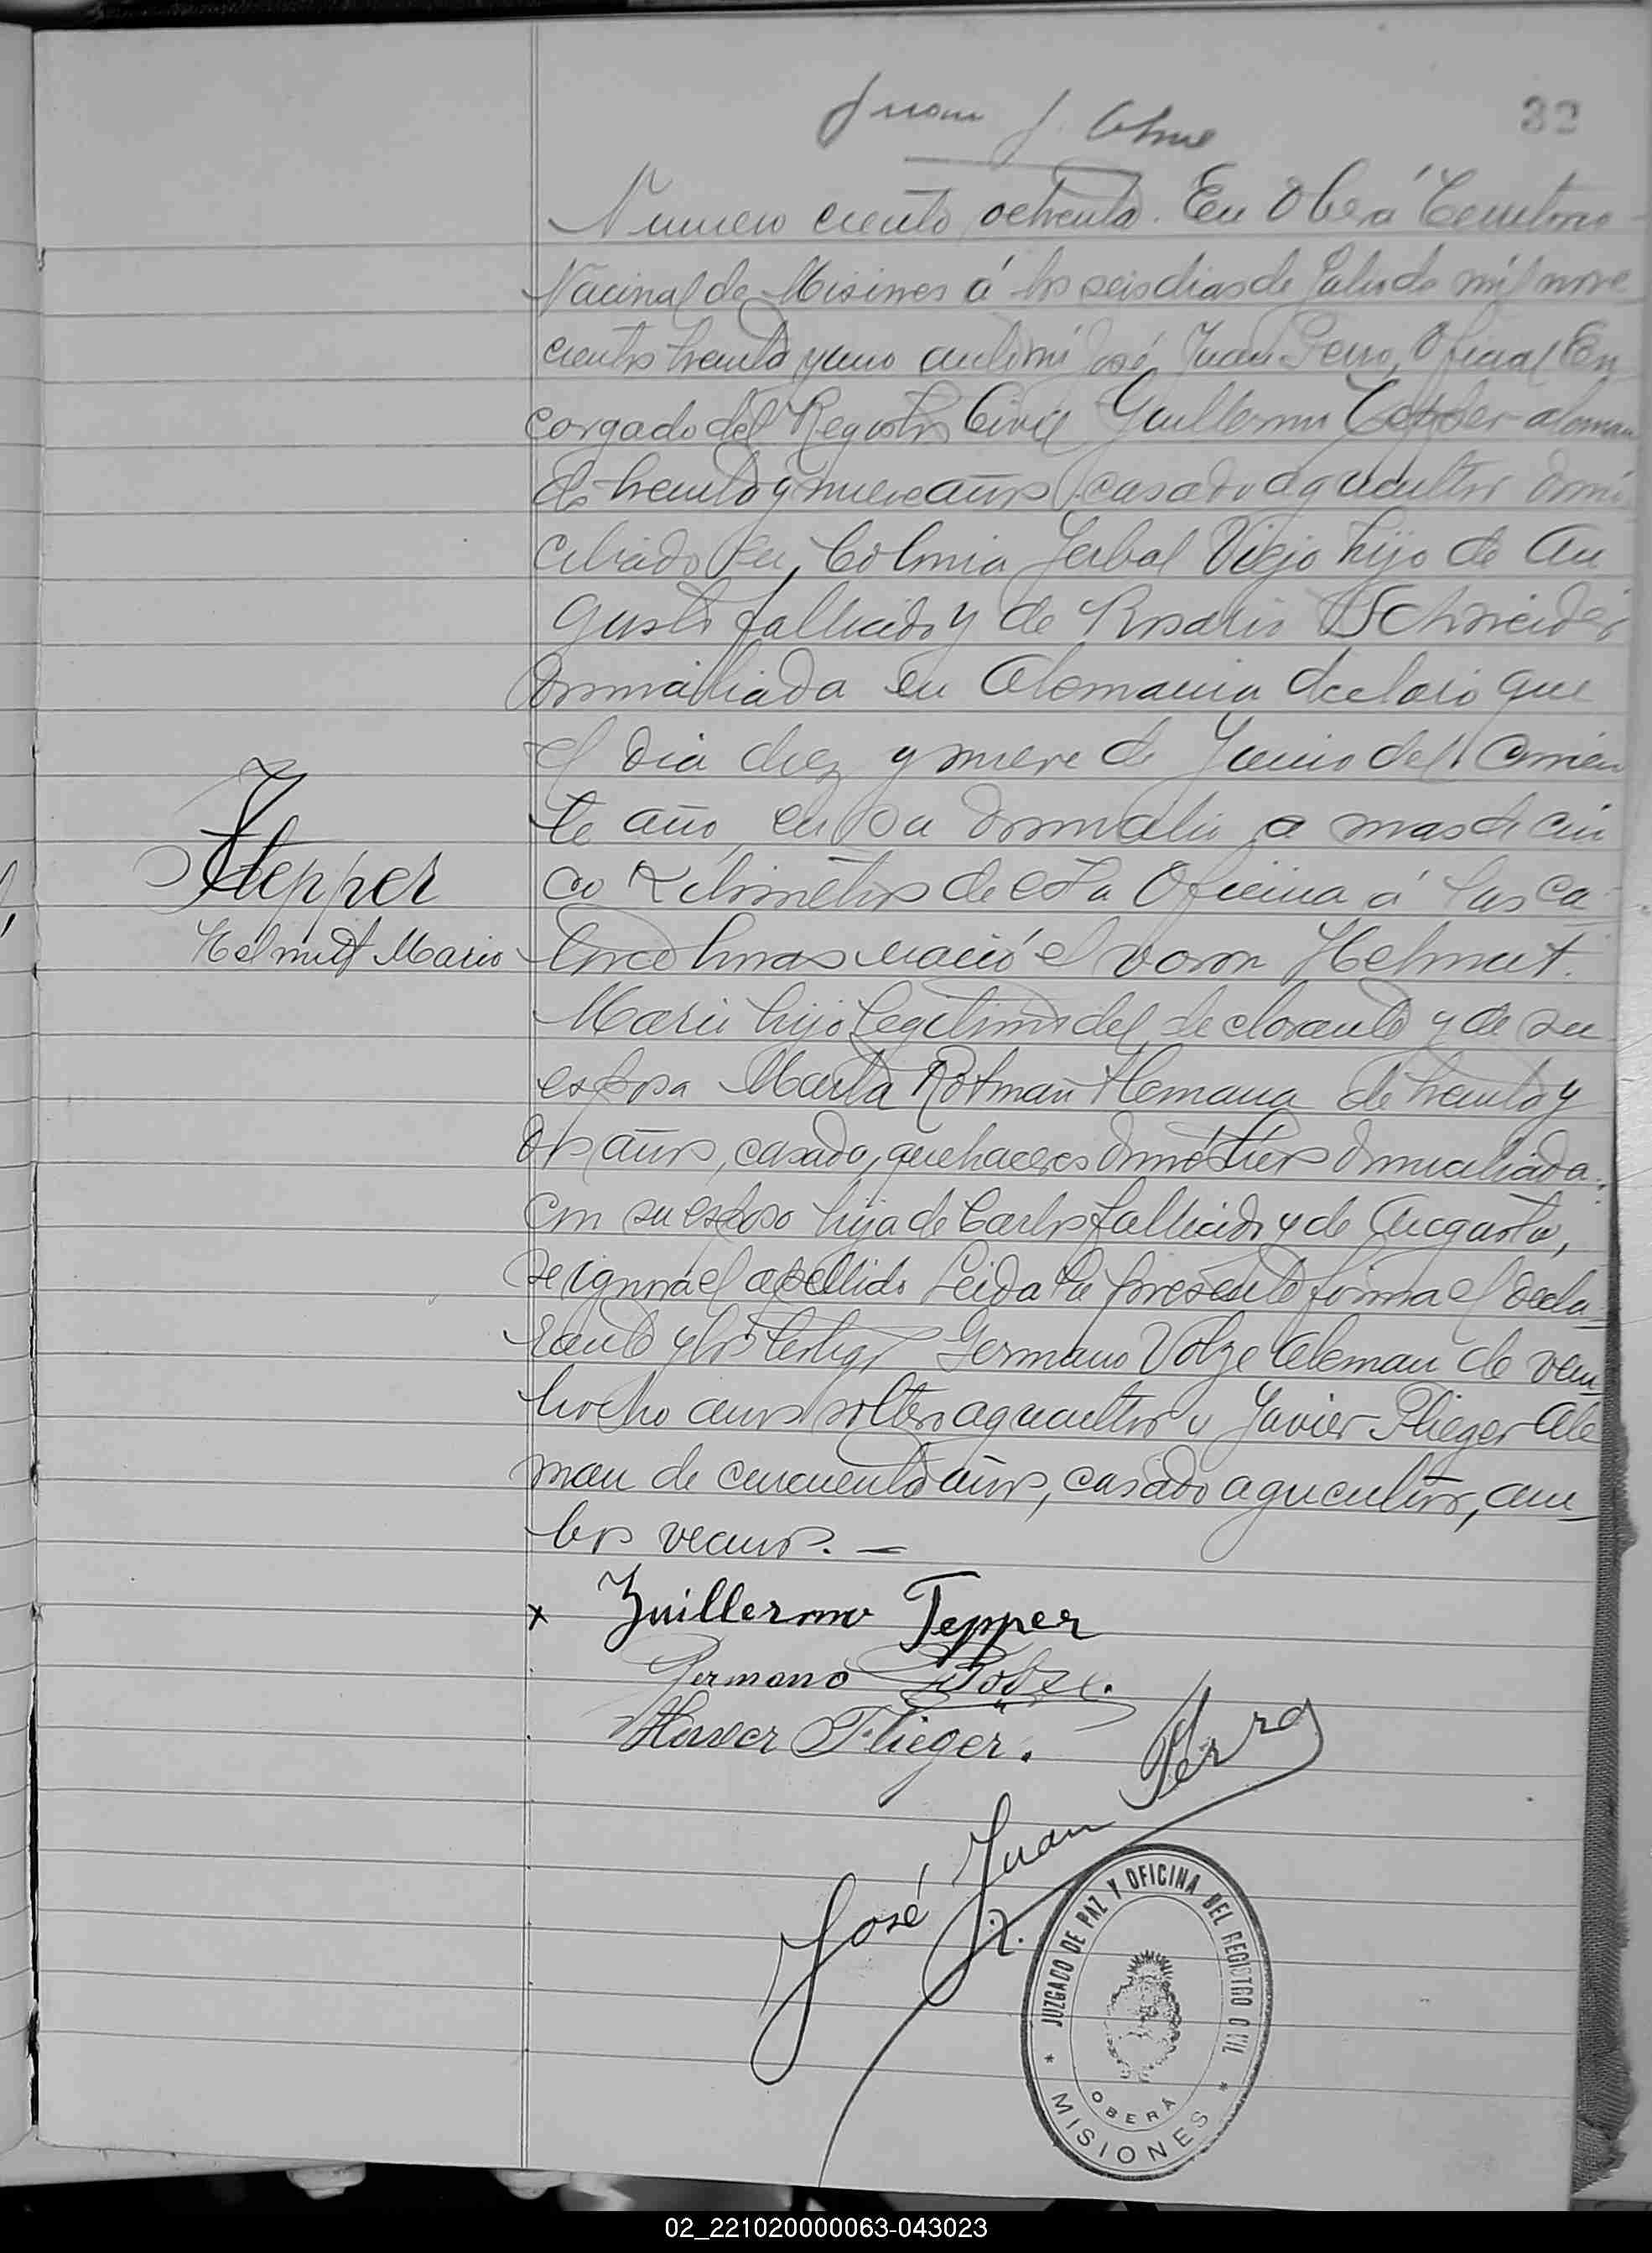 Juan J.
32
Numero ciento ochenta. En Oberá Territorio
Nacional de Misiones á los seis dias de Julio de mil nove
cientos treinta y uno ante mi José Juan Perro, Oficial En
cargado del Registro Civil Guillermo Tepper aleman
de treinta y nueve años casado agricultor domi
ciliado en Colonia Yerbal Viejo hijo de Au
gusto fallecido y de Rosario Schneider
domiciliada en Alemania declaró que
el dia diez y nueve de Junio del corrien
te año, en su domicilio a mas de cin
co Kilometros de esta Oficina á las ca
Tepper
Helmut Mario
torce horas nació el varon Helmut
Mario hijo legitimo del declarante y de su
esposa Marta Rotman Alemana de treinta y
dos años, casada, quehaceres domésticos domiciliada
con su esposo hija de Carlos fallecido y de Augusta,
se ignora el apellido Leida la presente firma el decla
rante y los testigos Germano Volze Aleman de vein
tiocho años soltero agricultor y Javier Flieger Ale
man de cincuenta años, casado agricultor, am
bos vecinos. —
x Guillermo Tepper
Germano
Flieger.
José Juan Perro
JUZGADO DE PAZ Y OFICINA DEL REGISTRO CIVIL
OBERÁ
* MISIONES *
02_221020000063-043023